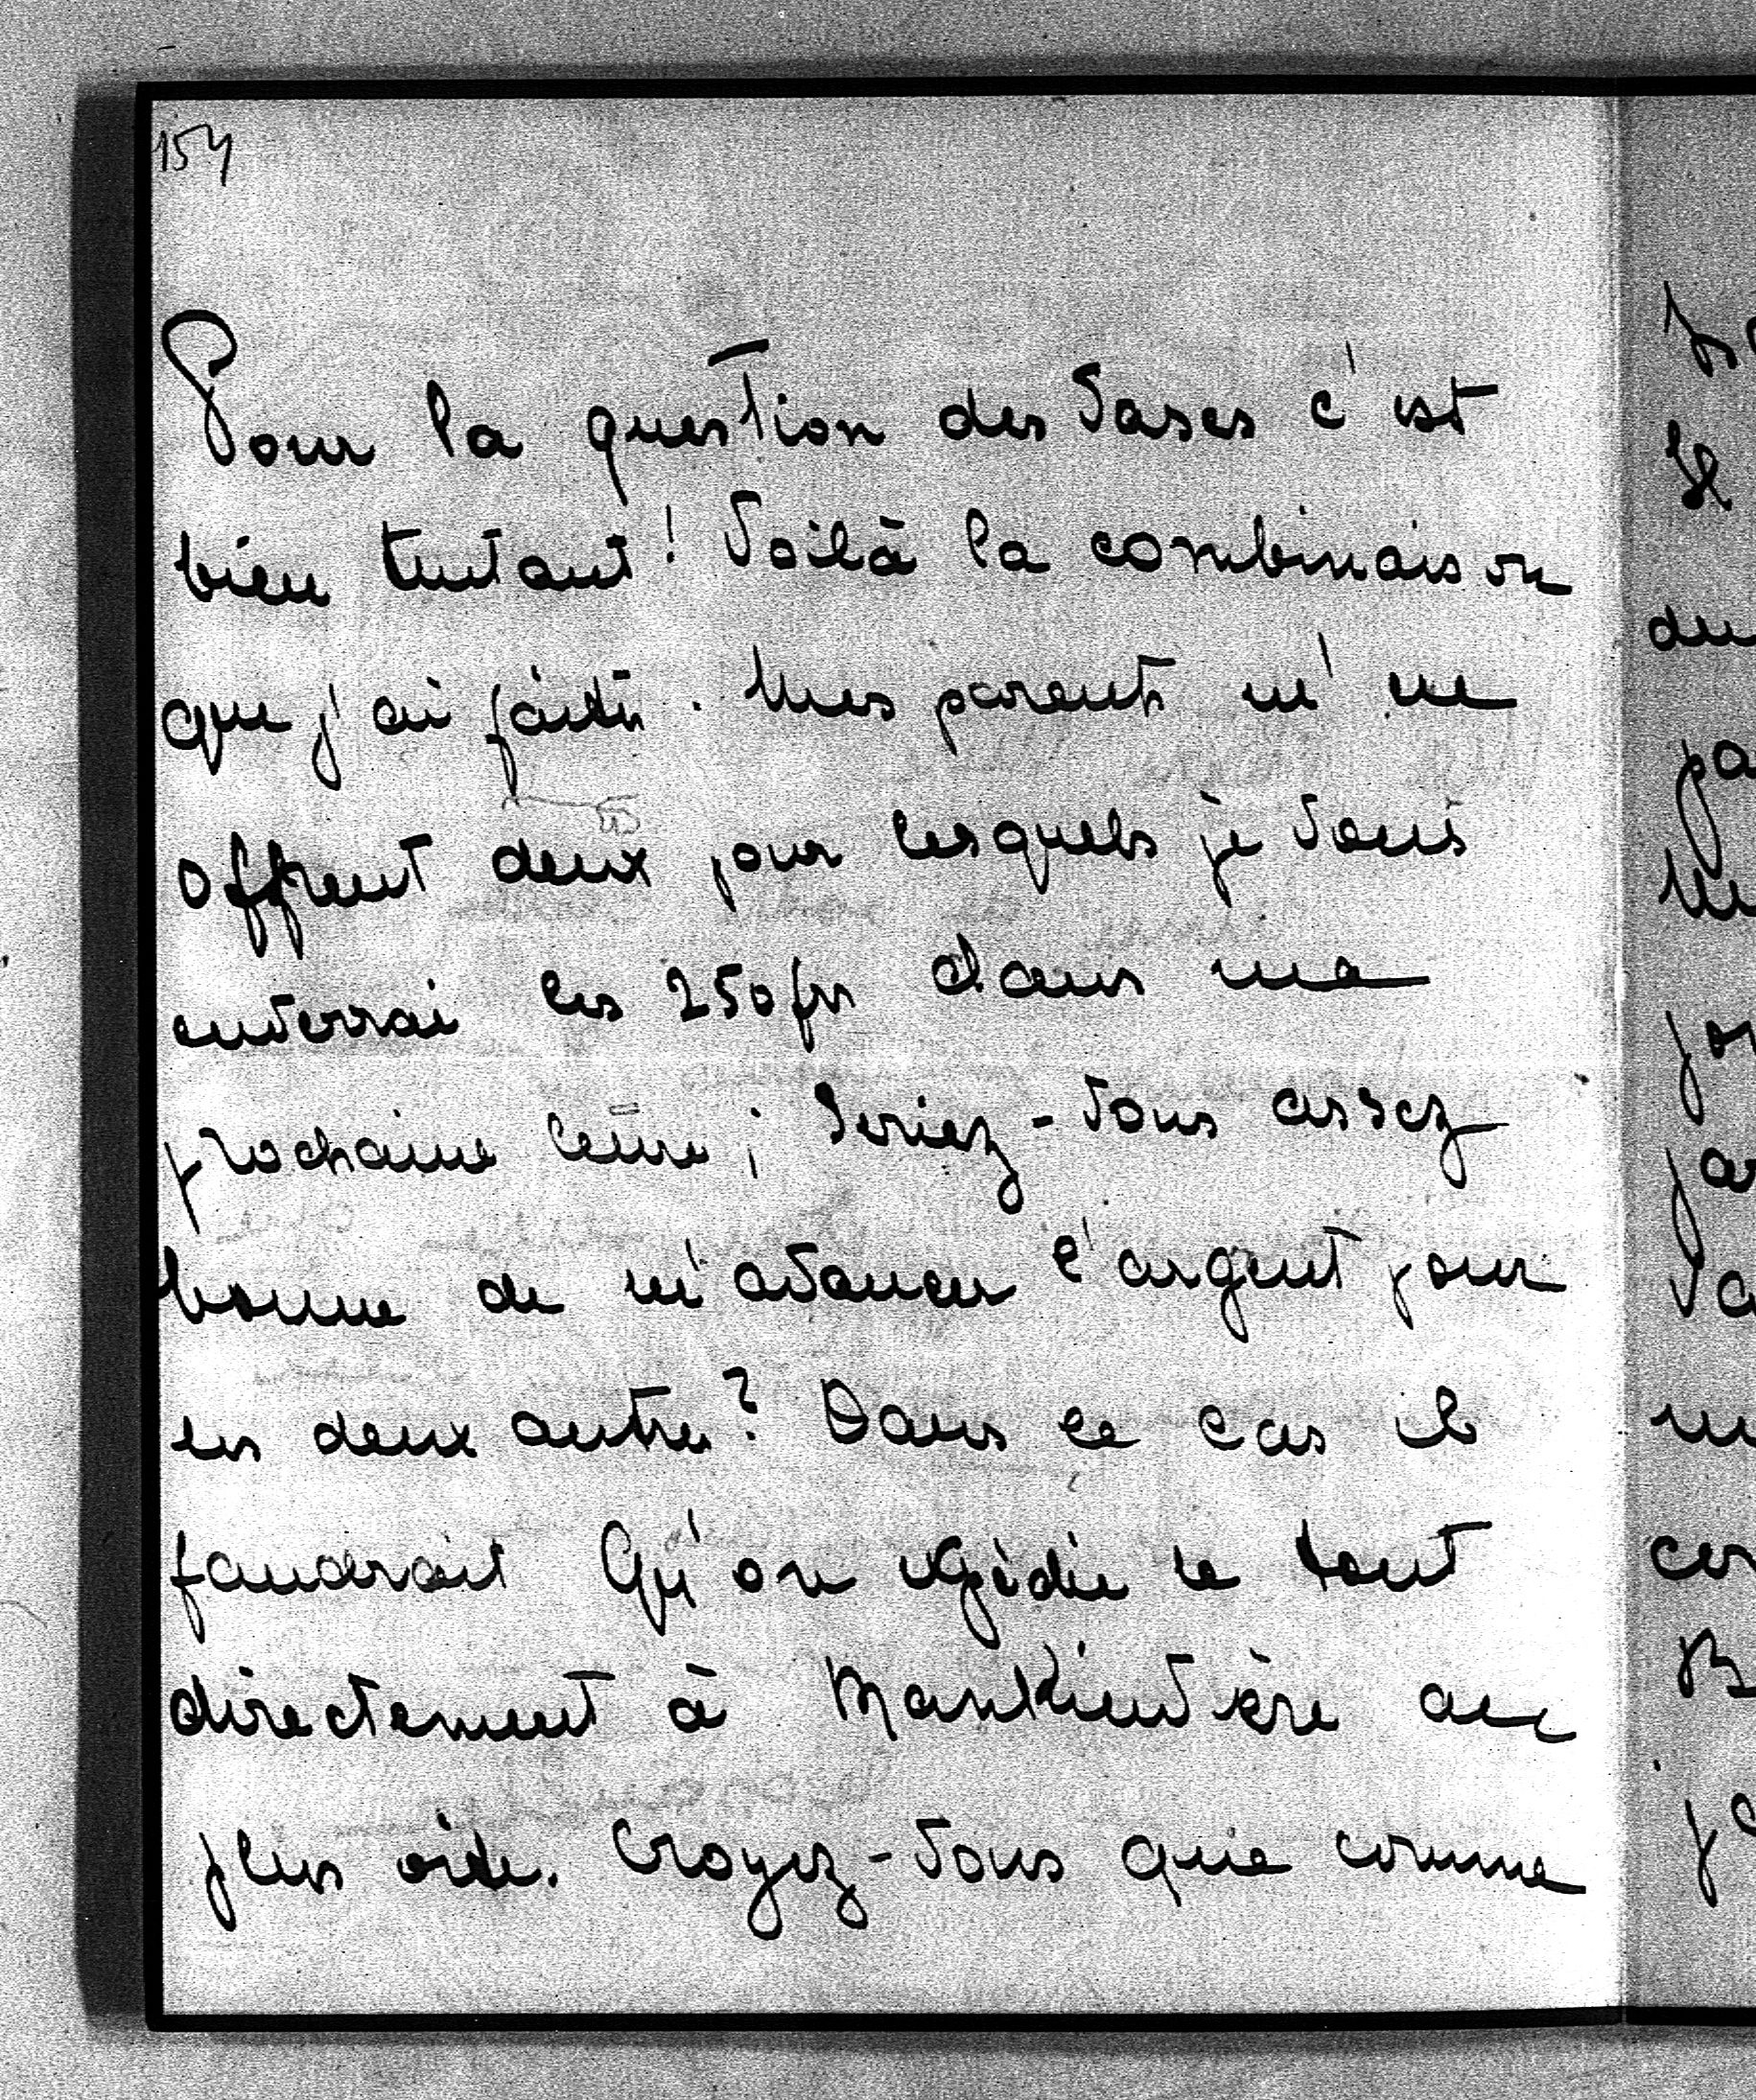 154
Pour la question des vases c'est
bien tentant! Voilà la combinaison
que j'ai faite. Mes parents m'en
offrent deux pour lesquels je vous
enverrai les 250 frs dans ma
prochaine lettre; Seriez-vous assez
bonne de m'avancer l'argent pour
les deux autres? Dans ce cas il
faudrait qu'on expédie le tout
directement à au
plus vite. Croyez-vous que comme